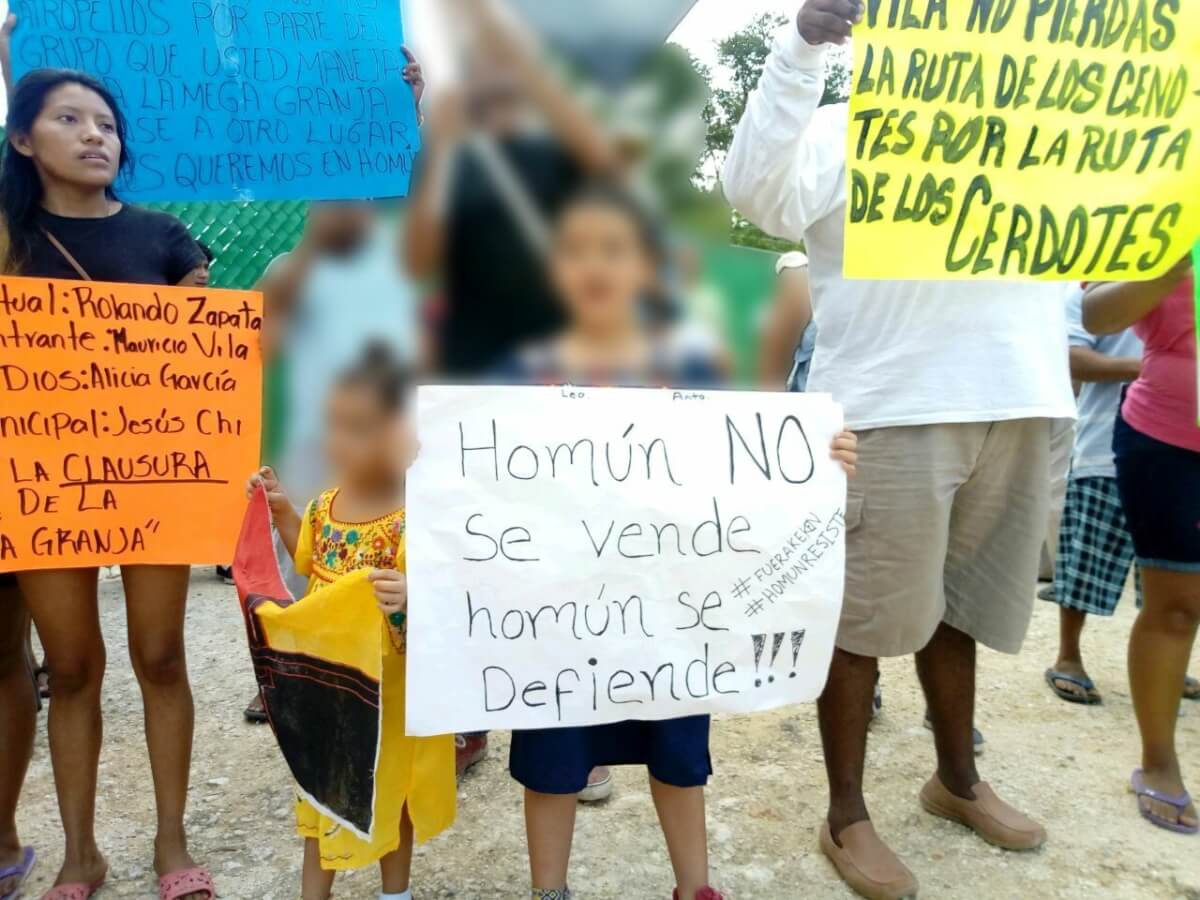 ATROPELLOS POR PARTE DEL
GRUPO QUE USTED MANEJA
LA MEGA GRANJA
A OTRO LUGAR
QUEREMOS EN HOMÚ
tual: Rolando Zapata
ntrante. Mauricio Vila
DIOS: Alicia García
nicipal: Jesús Chi
LA CLAUSURA
DE LA
GRANJA"
Leo. Anto.
Homún NO
Se vende
homún se
Defiende!!!
#FUERAKEKEN
#HOMUNRESISTE
VILA NO PIERDAS
LA RUTA DE LOS CENO
TES POR LA RUTA
DE LOS CERDOTES